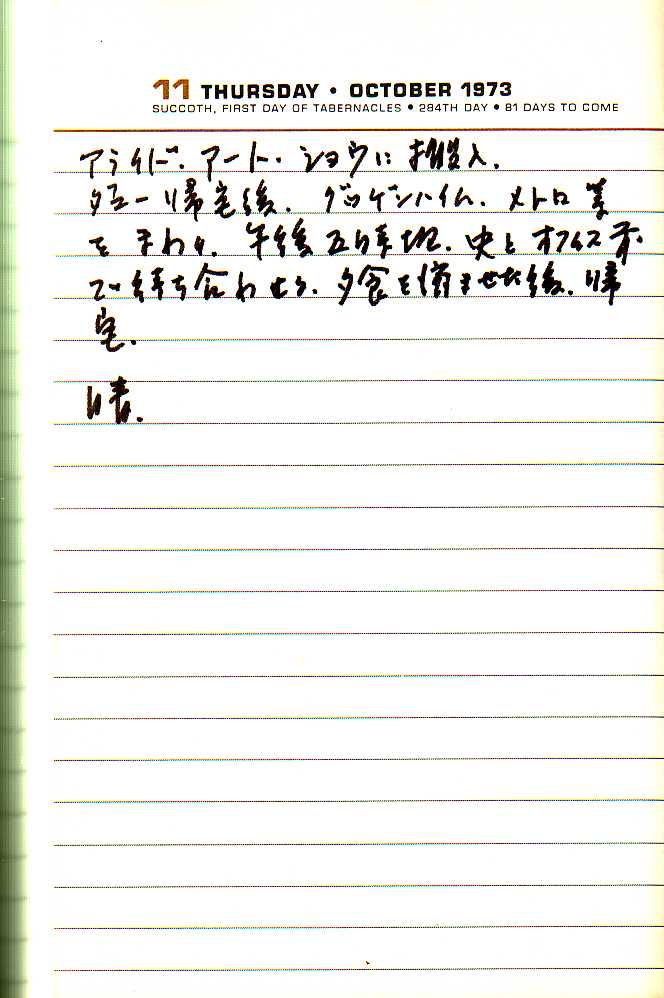 11 THURSDAY • OCTOBER 1973
SUCCOTH, FIRST DAY OF TABERNACLES • 284TH DAY • 81 DAYS TO COME
アライド・アート・ショウに搬入.
タエー帰宅後. グッゲンハイム. メトロ等
をまわり. 午後五時半. 史とオフィス
で待ち合わせる. 夕食を済ませた後. 帰
宅.
晴.